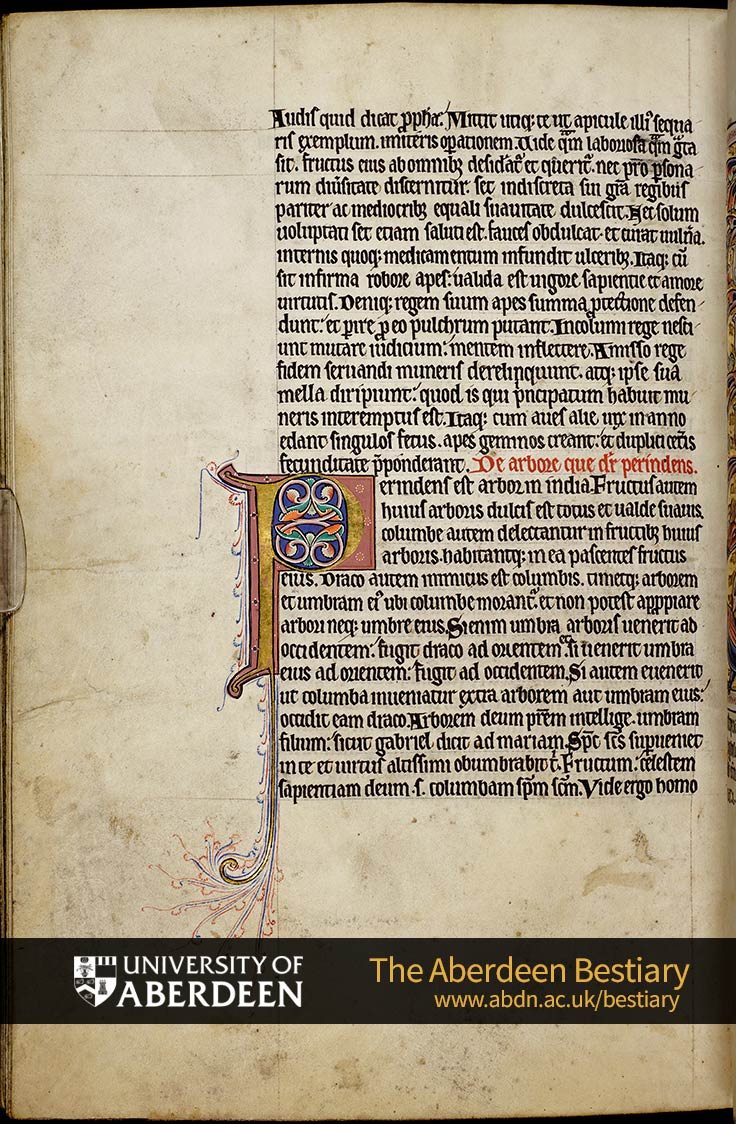 Audis quid dicat ꝓph̄a. Mittit utiq; te ut apicule illiꝰ sequa
ris exemplum. imiteris oꝑationem. Vide q̄m laboriosa q̄m gͣta
sit. fructus eius ab omnibꝫ desidat̄ et querit̄. nec pro ꝑsona
rum diu̾sitate discernitur. set indiscreta sui gr̄a regibus
pariter ac mediocribꝫ equali suauitate dulcescit. Net solum
uoluptati set etiam saluti est. fauces obdulcat. et curat uuln̾a.
internis quoq; medicamentum infundit ulceribꝫ. Itaq; cū
sit infirma robore apes: ualida est uigore sapientie et amore
uirtutis. Deniq; regem suum apes summa ꝓtectione defen
dunt: et ꝑire ꝓ eo pulchrum putant. Incolumi rege nesci
unt mutare iudicium: mentem inflectere. Amisso rege
fidem seruandi muneris derelinquunt. atq; ipse sua
mella diripiunt: quod is qui pͥncipatum habuit mu
neris interemptus est. Itaq; cum aues alie uix in anno
edant singulos fetus. apes geminos creant: et duplici cet̾is
fecunditate p̄ponderant. De arbore que dr̄ perindens.
Perindens est arbor in india. Fructus autem
huius arboris dulcis est totus et ualde suauis.
columbe autem delectantur in fructibꝫ huius
arboris. habitantq; in ea pascentes fructus
eius. Draco autem inimicus est columbis. timetq; arborem
et umbram eiꝰ ubi columbe morant̄. et non potest appͦpiare
arbori neq; umbre eius. Si enim umbra arboris uenerit ad
occidentem: fugit draco ad orientem. et si uenerit umbra
eius ad orientem: fugit ad occidentem. Si autem euenerit
ut columba inueniatur extra arborem aut umbram eius:
occidit eam draco. Arborem deum pr̄em intellige. umbram
filium: sicut gabriel dicit ad mariam. Spc̄ sc̄s suꝑueniet
in te et uirtus altissimi obumbrabit t̄. Fructum: celestem
sapientiam deum .s. columbam sp̄m sc̄m. Vide ergo homo
UNIVERSITY OF
ABERDEEN
The Aberdeen Bestiary
www.abdn.ac.uk/bestiary